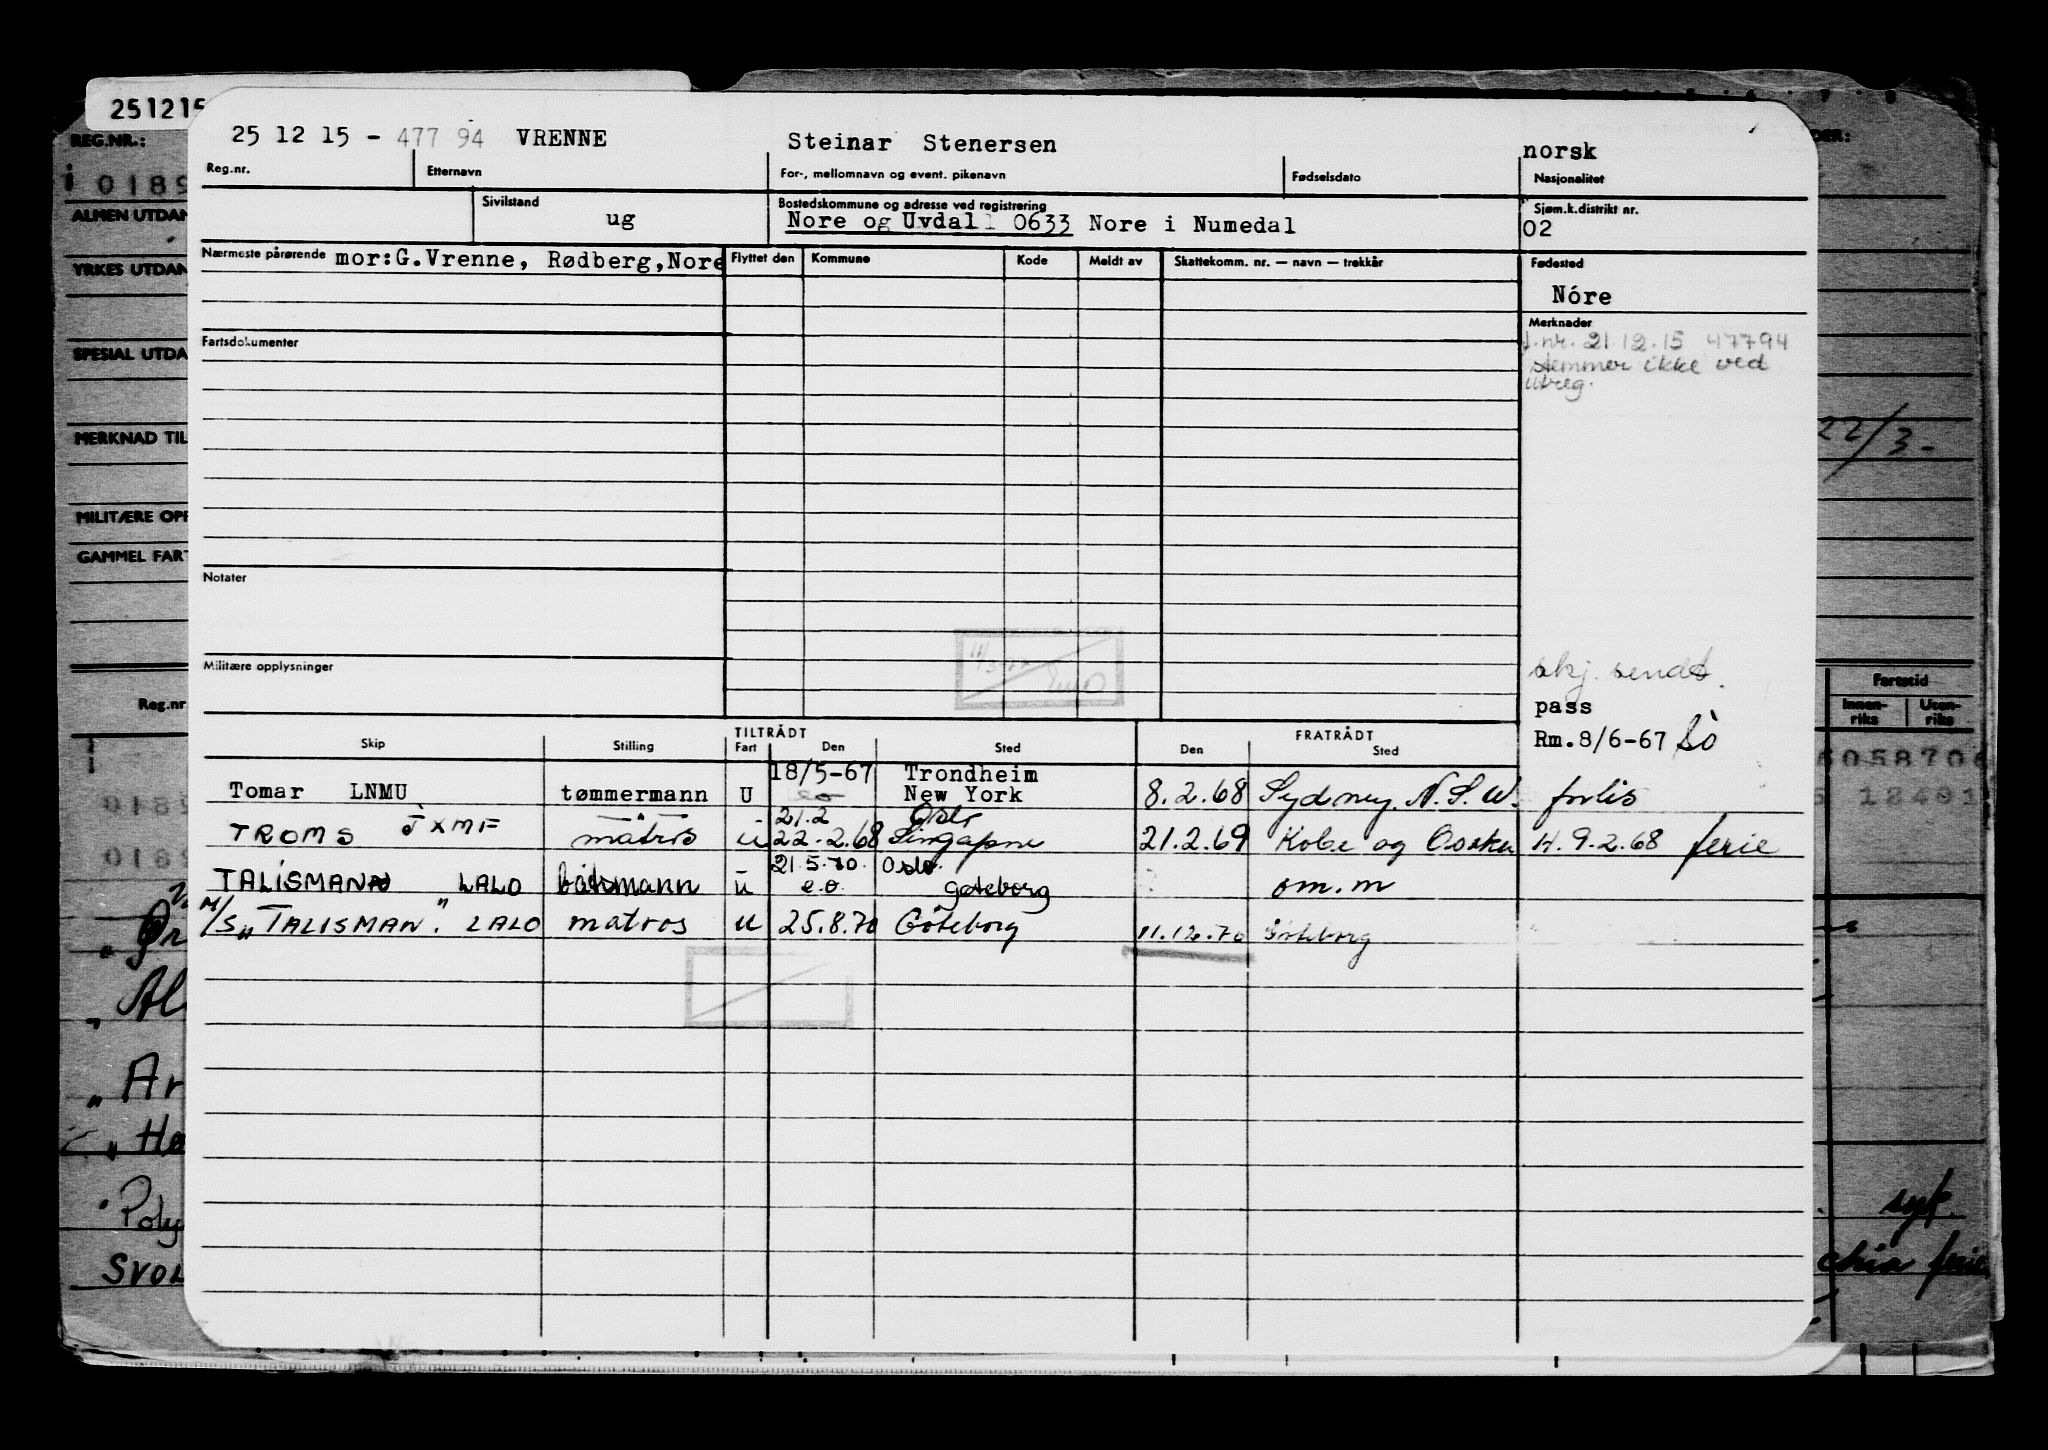 251215
25 12 15 - 477 94 VRENNE Steinar Stenersen norsk
Reg.nr. Etternavn For-, mellomnavn og event. pikenavn Fødselsdato Nasjonalitet
Sivilstand Bostedskommune og adresse ved registrering Sjøm.k.distrikt nr.
ug Nore og Uvdal 0633 Nore i Numedal 02
Nærmeste pårørende mor:G.Vrenne, Rødberg,Nore Flyttet den Kommune Kode Meldt av Skattekomm. nr. — navn — trekkår Fødested
Nóre
Merknader
f.nr. 21.12.15 47794
stemmer ikke ved
utreg.
Fartsdokumenter
Notater
Militære opplysninger
skj. sendt.
pass
Rm.8/6-67 Sò
TILTRÅDT FRATRÅDT
Skip Stilling Fart Den Sted Den Sted
18/5-67 Trondheim
Tomar LNMU tømmermann U New York 8.2.68 Sydney. N.S.W. forlis
21.2 Oslo
TROMS JXMF matros u 22.2.68 Singapore 21.2.69 Kobe og Osaka H. 9.2.68 ferie
21.5.70 Oslo
TALISMAN LALO båtsmann u e.o. Gøteborg om.m
M/S "TALISMAN". LALO matros u 25.8.70 Göteborg 11.12.70 Göteborg
REG.NR.:
0189
ALMEN UTDAN
YRKES UTDAN
SPESIAL UTDA
MERKNAD TIL
MILITÆRE OPP
GAMMEL FART
Reg.nr
0189
0189
Al
Ar
Ha
Poly
SVOL
DER:
22/3-
Fartstid
Innen-riks Uten-riks
605870
18401
syk.
ferie